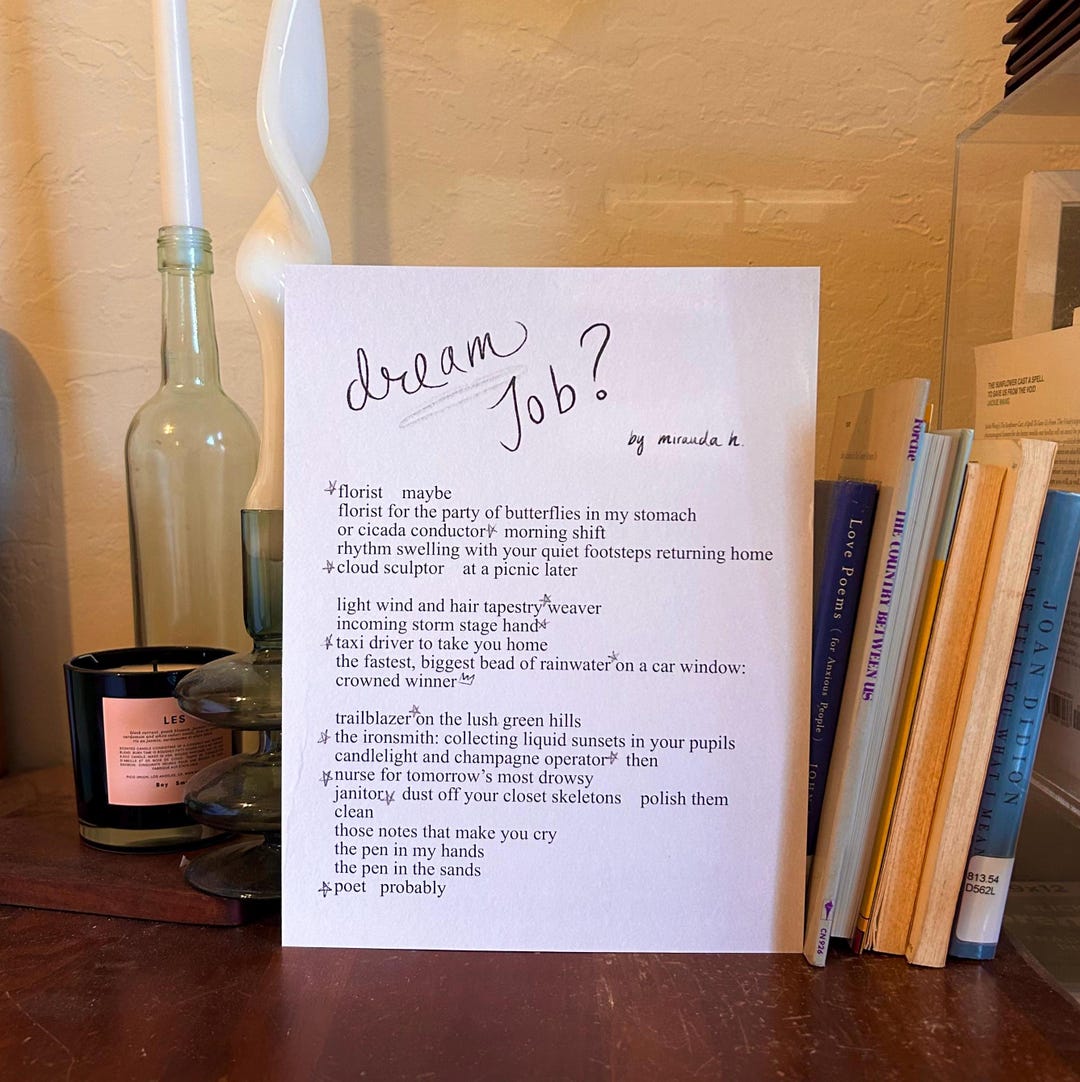 dream
Job?
by miranda h.
florist maybe
florist for the party of butterflies in my stomach
or cicada conductor morning shift
rhythm swelling with your quiet footsteps returning home
cloud sculptor at a picnic later
light wind and hair tapestry weaver
incoming storm stage hand
taxi driver to take you home
the fastest, biggest bead of rainwater on a car window:
crowned winner
trailblazer on the lush green hills
the ironsmith: collecting liquid sunsets in your pupils
candlelight and champagne operator then
nurse for tomorrow's most drowsy
janitor dust off your closet skeletons polish them
clean
those notes that make you cry
the pen in my hands
the pen in the sands
poet probably
LES
Love Poems (for Anxious People)
Forché
THE COUNTRY BETWEEN US
CN 926
JOAN DIDION
LET ME TELL YOU WHAT I MEAN
813.54
D562L
THE SUNFLOWER CAST A SPELL
TO SAVE US FROM THE VOID
JACKIE WANG
9x12